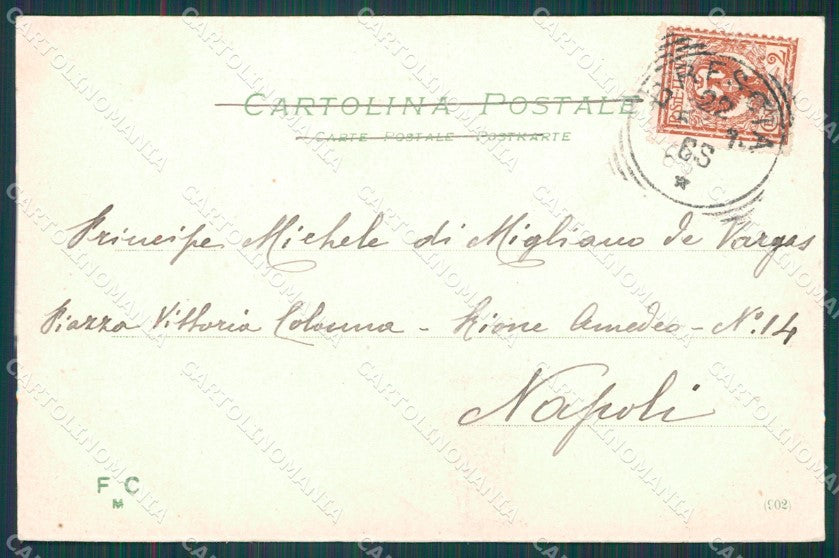 CARTOLINA POSTALE
CARTE POSTALE - POSTKARTE
22
Principe Michele di Migliano de Vargas
Piazza Vittoria Colonna - Rione Amedeo - No. 14
Napoli
F C
M
(902)
CARTOLINOMANIA